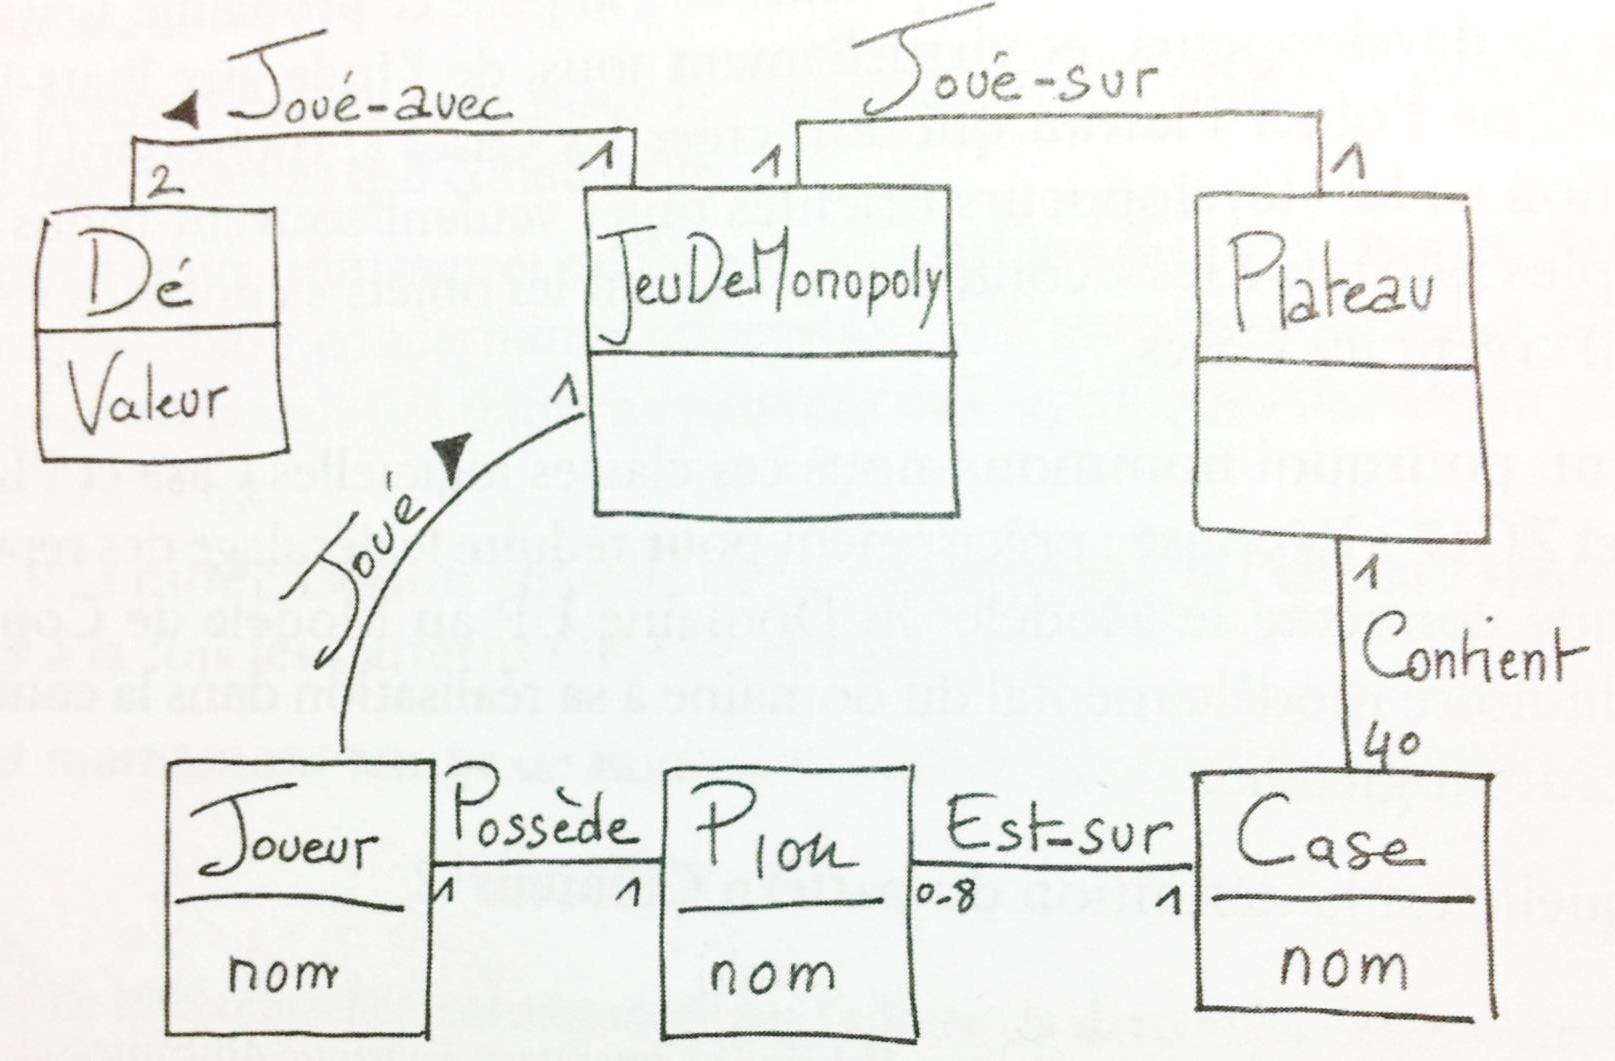 Joué-avec
Joué-sur
2
1
1
1
Dé
Valeur
JeuDeMonopoly
Plateau
1
Joué
1
Contient
40
Joueur
nom
Possède
1
1
Pion
nom
Est-sur
0-8
1
Case
nom